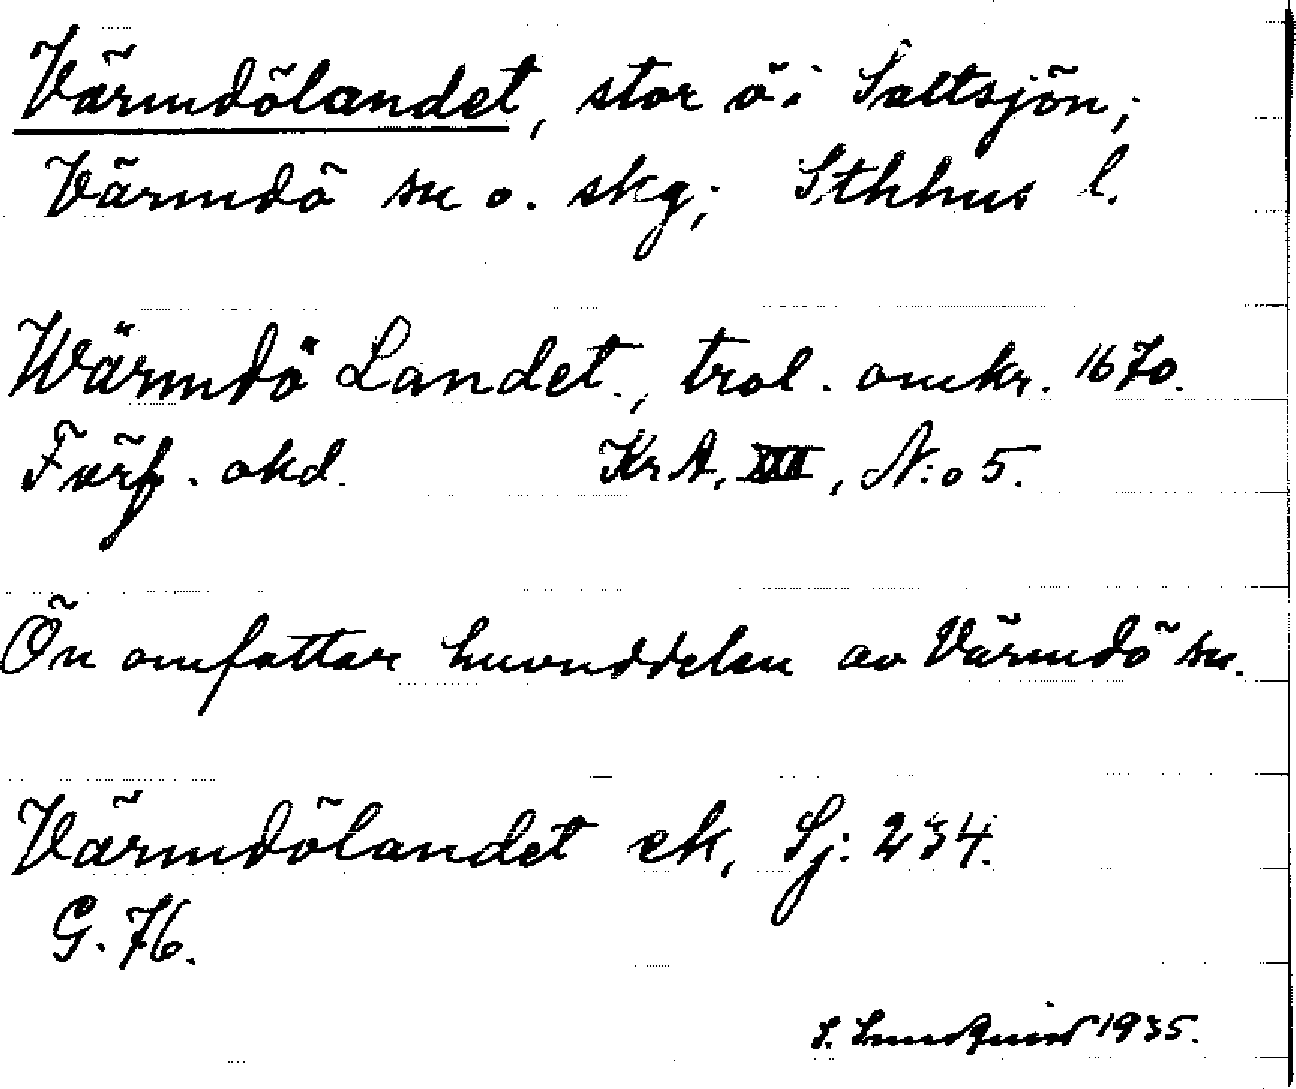 Värmdölandet, stor ö i Saltsjön;
Värmdö sn o. skg; Sthhus l.
Wärmdö Landet, trol. omkr. 1670.
Förf. okd. KrA, XIII, N:o 5.
Ön omfattar huvuddelen av Värmdö sn.
Värmdölandet ek, Sj: 234.
G. 76.
S. Lundquist 1935.